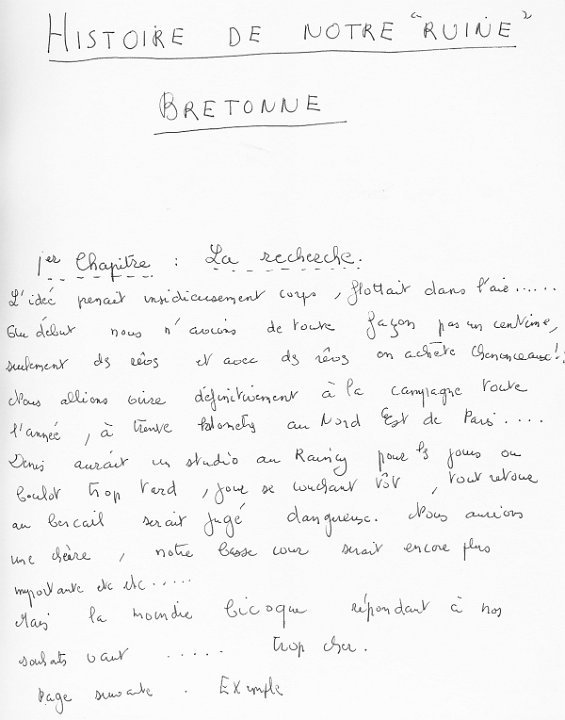 HISTOIRE DE NOTRE "RUINE"
BRETONNE
1er Chapitre : La recherche.
L'idée prenait insidieusement corps, flottait dans l'air......
Au début nous n'avions de toute façon pas un centime,
seulement ds rêves et avec ds rêves on achète Chenonceaux!;
Nous allions vivre définitivement à la campagne toute
l'année, à trente kilomètres au Nord Est de Paris....
Denis aurait un studio au Raincy pour ls jours ou
boulot trop tard, pour se couchant tôt, tout retour
au bercail serait jugé dangereux. Nous aurions
une chèvre, notre basse cour serait encore plus
importante etc etc.....
Mais la moindre bicoque répondant à nos
souhaits vaut ..... trop cher.
Page suivante . Exemple